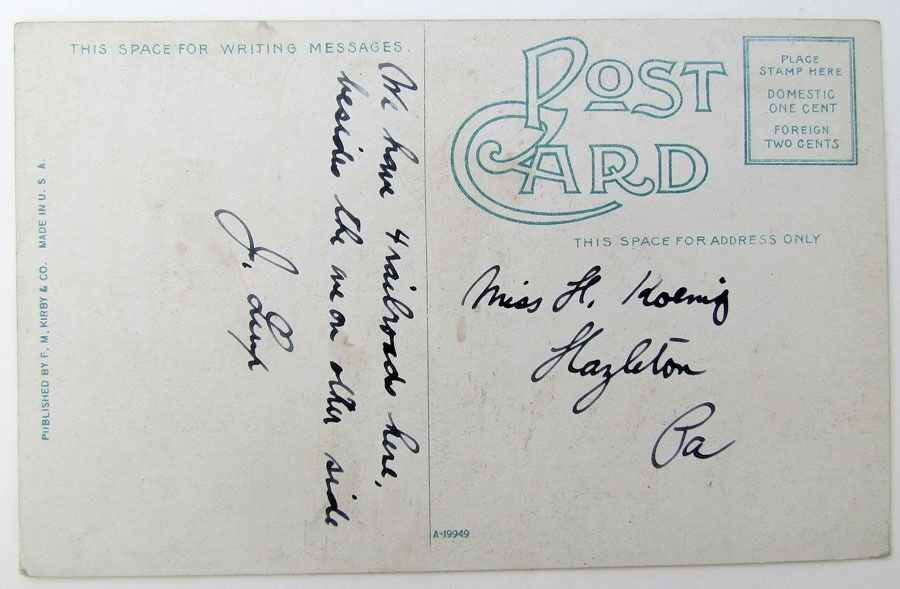 THIS SPACE FOR WRITING MESSAGES.
We have 4 railroads here,
besides the one on other side
J.
PUBLISHED BY F. M. KIRBY & CO. MADE IN U. S. A.
POST
CARD
PLACE
STAMP HERE
DOMESTIC
ONE CENT
FOREIGN
TWO CENTS
THIS SPACE FOR ADDRESS ONLY
Miss H. Koenig
Hazleton
Pa
A-19949